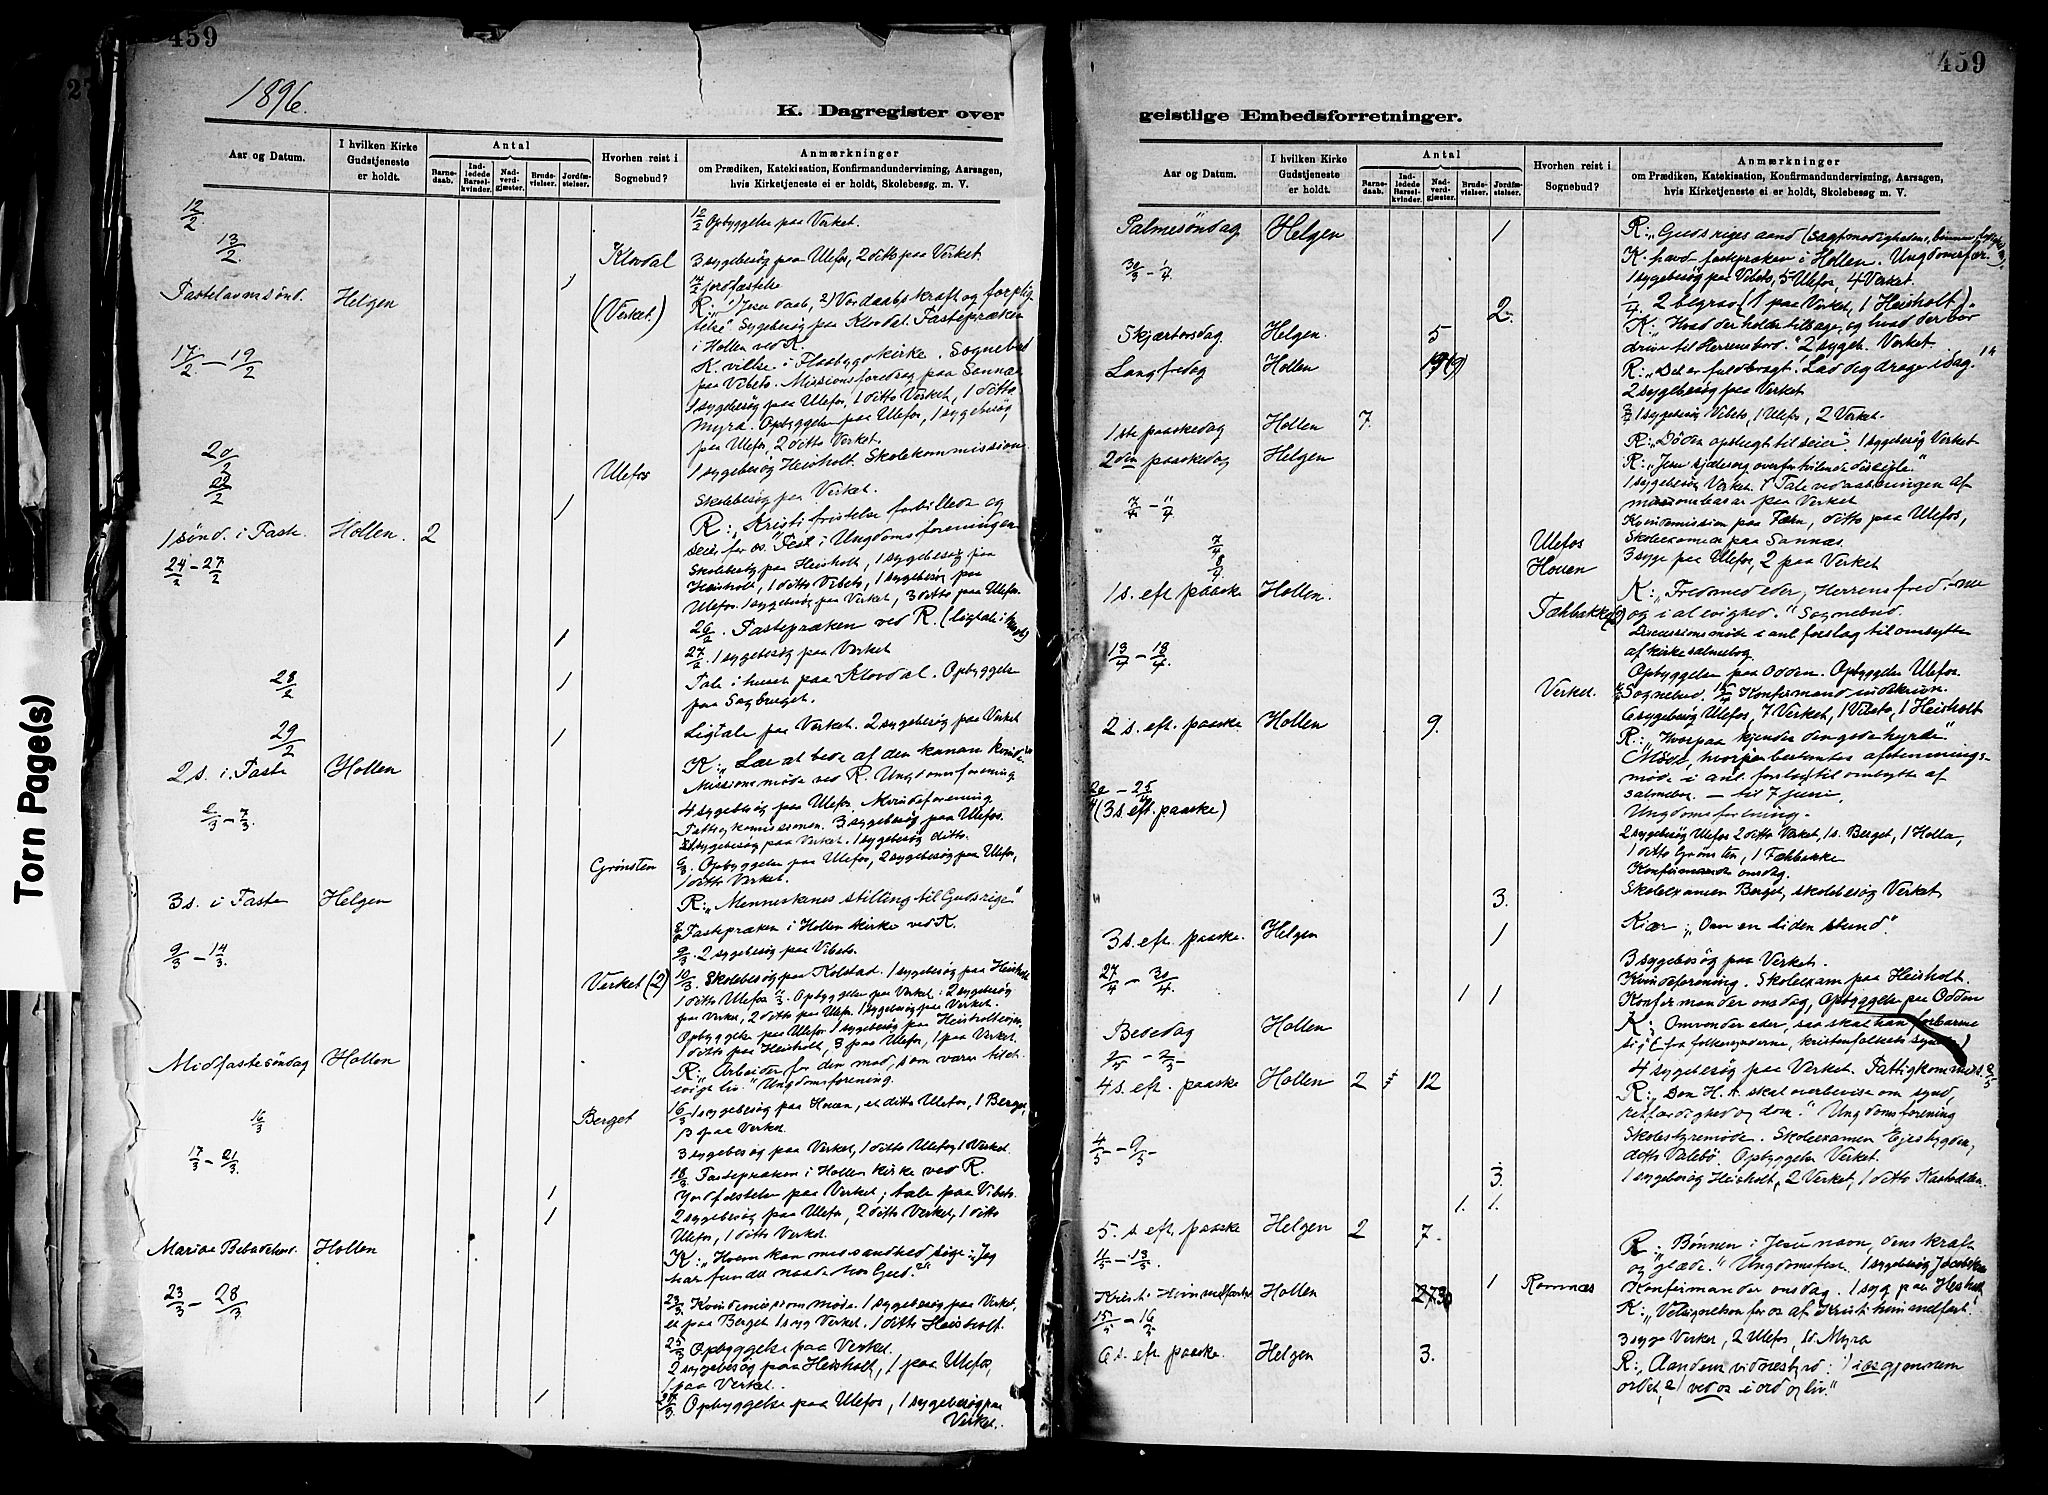 459
1896.
K. Dagregister over
Aar og Datum.
I hvilken Kirke Gudstjeneste er holdt.
Antal
Barnedaab.
Indledede Barselkvinder.
Nadverdgjæster.
Brudevielser.
Jordfæstelser.
Hvorhen reist i Sognebud?
Anmærkninger
om Prædiken, Katekisation, Konfirmandundervisning, Aarsagen,
hvis Kirketjeneste ei er holdt, Skolebesøg. m. V.
12/2 12/2 Opbyggelse paa Verket.
13/2 Klovdal 3 sygebesøg paa Ulefos, 2 ditto paa Verket
1 14/2 jordfæstelse
Fastelavnssønd. Helgen (Verket.) R: „1) Jesu daab, 2) Vor daabs kraft og forplig
telse" Sygebesøg paa Klovdal. Fastepræken
i Hollen ved K.
17/2 – 19/2 K. vielse i Flaabygd kirke. Sognebud
paa Vibeto. Missionsforedrag paa Sannæs
1 sygebesøg paa Ulefos, 1 ditto Verket, 1 ditto
Myra. Opbyggelse paa Ulefos, 1 sygebesøg
paa Ulefos, 2 ditto Verket.
20/2 Ulefos 1 sygebesøg Heisholt. Skolekommission
22/2 1 Skolebesøg paa Verket.
1 sønd. i Faste Hollen. 2 R: „Kristi fristelse forbillede og
seier for os." Fest i Ungdomsforeningen
24/2 – 27/2 Skolebesøg paa Heisholt, 1 sygebesøg paa
Heisholt, 1 ditto Vibeto, 1 sygebesøg paa
Ulefos. 1 sygebesøg paa Verket, 3 ditto paa Ulefos.
26/2. Fastepræken ved R. (ligtale i
1 27/2. 1 sygebesøg paa Verket
28/2 1 Tale i huset paa Klovdal. Opbyggelse
paa Sagbruget.
29/2 1 Ligtale paa Verket. 2 sygebesøg paa Verket
2 s. i Faste Hollen K: „Lær at bede af den kanan. kvinde"
Missionsmøde ved R. Ungdomsforening.
2/3 – 7/3. 4 sygebesøg paa Ulefos. Kvindeforening.
Fattigkommissionen. 3 sygebesøg paa Ulefos.
sygebesøg paa Verket. 1 sygebesøg ditto.
Grønsten 6/3. Opbyggelse paa Ulefos, 2 sygebesøg paa Ulefos,
1 ditto Verket.
3 s. i Faste Helgen R: „Menneskenes stilling til Guds rige"
Fastepræken i Hollen kirke ved K.
9/3 – 14/3. 9/3. 2 sygebesøg paa Vibeto.
Verket (2) 10/3. Skolebesøg paa Kolstad. 1 sygebesøg paa Heisholt
1 ditto Ulefos 11/3. Opbyggelse paa Verket. 2 sygebesøg
paa Verket, 2 ditto paa Ulefos. 1 sygebesøg paa Verket.
Opbyggelse paa Ulefos 1 sygebesøg paa Heisholt
1 ditto paa Heisholt, 3 paa Ulefos, 1 paa Verket.
Midfastesøndag Hollen R: „Arbeider for den mad, som varer til det
evige liv." Ungdomsforening.
16/3 Berget 16/3 1 sygebesøg paa Houen, et ditto Ulefos, 1 Berget,
13 paa Verket.
17/3 – 21/3. 3 sygebesøg paa Verket, 1 ditto Ulefos, 1 Verket.
18/3 Fastepræken i Hollen kirke ved R.
1 Jordfæstelse paa Verket; tale paa Vibeto.
1 2 sygebesøg paa Ulefos, 2 ditto Verket, 1 ditto
Ulefos, 1 ditto Verket.
Mariæ Bebudelsesd. Hollen K: „Hvem kan med sandhed sige: Jeg
har fundet naade hos Gud?"
23/3 – 28/3 23/3. Kvindemissionsmøde. 1 sygebesøg paa Verket,
et paa Berget 1 syg Verket. 1 ditto Heisholt.
25/3 Opbyggelse paa Verket.
2 sygebesøg paa Heisholt, 1 paa Ulefos,
1 paa Verket.
1 Opbyggelse paa Ulefos, 1 sygebesøg paa
Verket.
Torn Page(s)
459
geistlige Embedsforretninger.
Aar og Datum.
I hvilken Kirke Gudstjeneste er holdt.
Antal
Barnedaab.
Indledede Barselkvinder.
Nadverdgjæster.
Brudevielser.
Jordfæstelser.
Hvorhen reist i Sognebud?
Anmærkninger
om Prædiken, Katekisation, Konfirmandundervisning, Aarsagen,
hvis Kirketjeneste ei er holdt, Skolebesøg m. V.
Palmesøndag Helgen 1 R: „Gudsriges aand (sagtmodigheden,
K. havd fastepræken i Hollen. Ungdomsfor.
30/3 – 1/4. 1 sygebesøg paa Vibeto, 5 Ulefos, 4 Verket.
2. 1/4 2 begrav. (1 paa Verket, 1 Heisholt).
Skjærtorsdag Helgen. 5 K: „Hvad der holder tilbage, og hvad der bør
drive til Herrens bord." 2 sygeb. Verket
Langfredag Hollen R: „Det er fuldbragt. Lad dig drage idag."
2 sygebesøg paa Verket
1 sygebesøg Vibeto, 1 Ulefos, 2 Verket.
1ste paaskedag Hollen 7. R: „Døden opslugt til seier". 1 sygebesøg Verket
2den paaskedag Helgen R: „Jesu sjælesorg overfor tvilende disciple."
7/4 – 11/4 1 sygebesøg Verket. Tale ved aabningen af
missionsbasar paa Verket
Kvindemission paa Færn, ditto paa Ulefos,
7/4 Ulefos Skoleexamen paa Sannæs.
8/4. Houen 3 syge paa Ulefos, 2 paa Verket
1 s. eft. paaske Hollen. K: „Fred med eder, Herrens fred! nu
Fæhbakke og i al evighed." Sognebud.
13/4 – 18/4. Discussionsmøde i anl. forslag til ombytte
af kirkesalmebog
Opbyggelse paa Odden. Opbyggelse Ulefos.
Verket. Sognebud. 15/4 Konfirmandindskrivn.
2 s. eft. paaske. Hollen 9. 6 sygebesøg Ulefos, 7 Verket, 1 Vibeto, 1 Heisholt
R: „Hvorpaa kjendes den gode hyrde"
Møde, hvorpaa bestemtes afstemnings-
møde i anl. forslag til ombytte af
20 – 25/4 salmebog. — til 7 juni.
(3 s. eft. paaske) Ungdomsforening.
2 sygebesøg Ulefos 2 ditto Verket, 1 s. Berget, 1 Holla,
1 ditto Grønsten, 1 Fæhbakke
Konfirmander onsdag.
" 3. Skoleexamen Berget, skolebesøg Verket
3 s. eft. paaske. Helgen 1 Kiær: „Om en liden stund".
27/4 – 30/4. 3 sygebesøg paa Verket.
Kvindeforening. Skoleexam paa Heisholt.
1 1 Konfirmander onsdag, Opbyggelse paa Odden
Bededag Hollen K: Omvender eder, saa skal han forbarme
sig (fra folkesynderne, kristenfolkets synder)
1/5 – 2/5 4 sygebesøg paa Verket. Fattigkommis. 2/5
4 s. eft. paaske Hollen 2 12 R: „Den H. A. skal overbevise om synd,
retfærdighed og dom." Ungdomsforening
4/5 – 9/5 Skolestyremøde. Skoleexamen Ejesbygden,
ditto Valebø Opbyggelse Verket.
3. 1 sygebesøg Heisholt, 2 Verket, 1 ditto Kastodden.
1. 1.
5. s. eft. paaske Helgen 2 7. R: „Bønnen i Jesu navn, dens kraft
11/5 – 13/5. og glæde." Ungdomsfor. 1 sygebesøg
Kristi Himmelfartsd Hollen 1 Romnæs Konfirmander onsdag. 1 syg paa Heisholt
R: „Velsignelsen for os af Kristi himmelfart."
15/5 – 16/5 3 syge Verket, 2 Ulefos, Myra
6 s. eft. paaske. Helgen 3. R: „Aandens vidnesbyrd: 1) i os gjennem
ordet, 2) ved os i ord og liv."